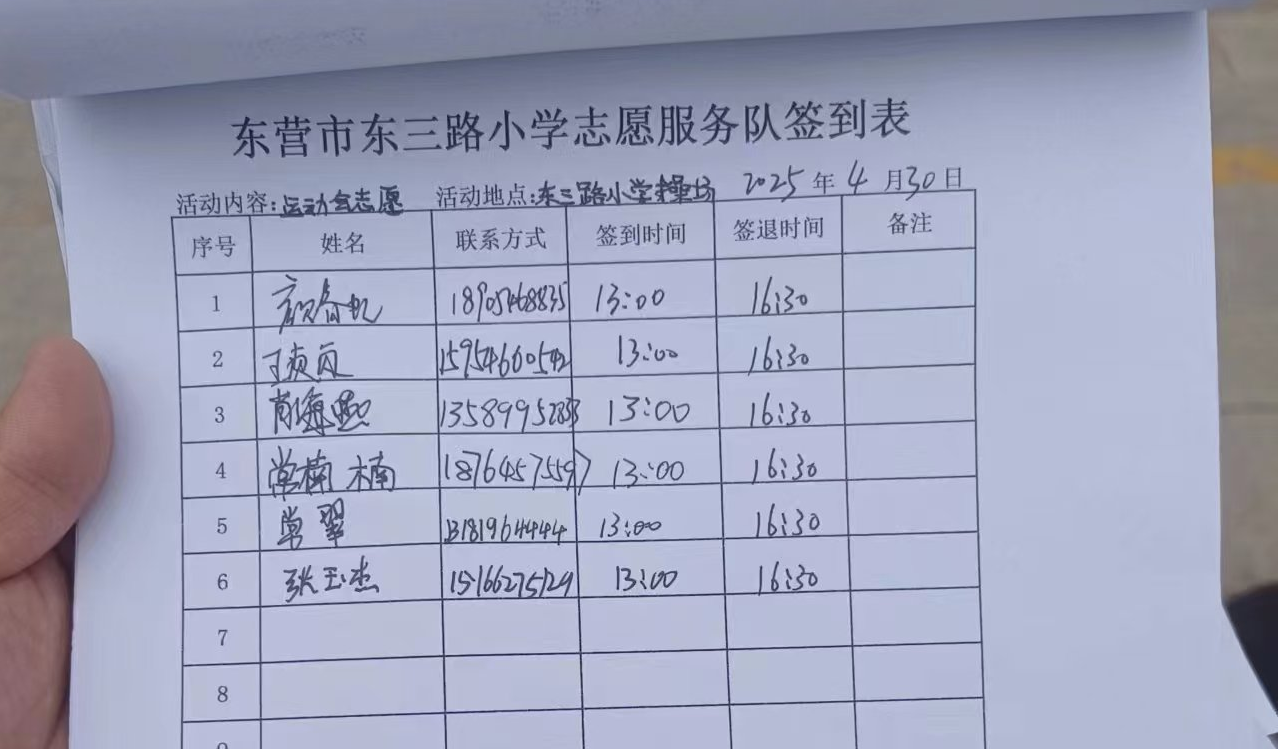 东营市东三路小学志愿服务队签到表
活动内容:运动会志愿 活动地点:东三路小学操场 2025年4月30日
序号 姓名 联系方式 签到时间 签退时间 备注
1 颜春帆 18905468835 13:00 16:30
2 15954660542 13:00 16:30
3 肖海照 13589952853 13:00 16:30
4 常楠楠 18764575597 13:00 16:30
5 常翠 13181964444 13:00 16:30
6 张玉杰 15166275729 13:00 16:30
7
8